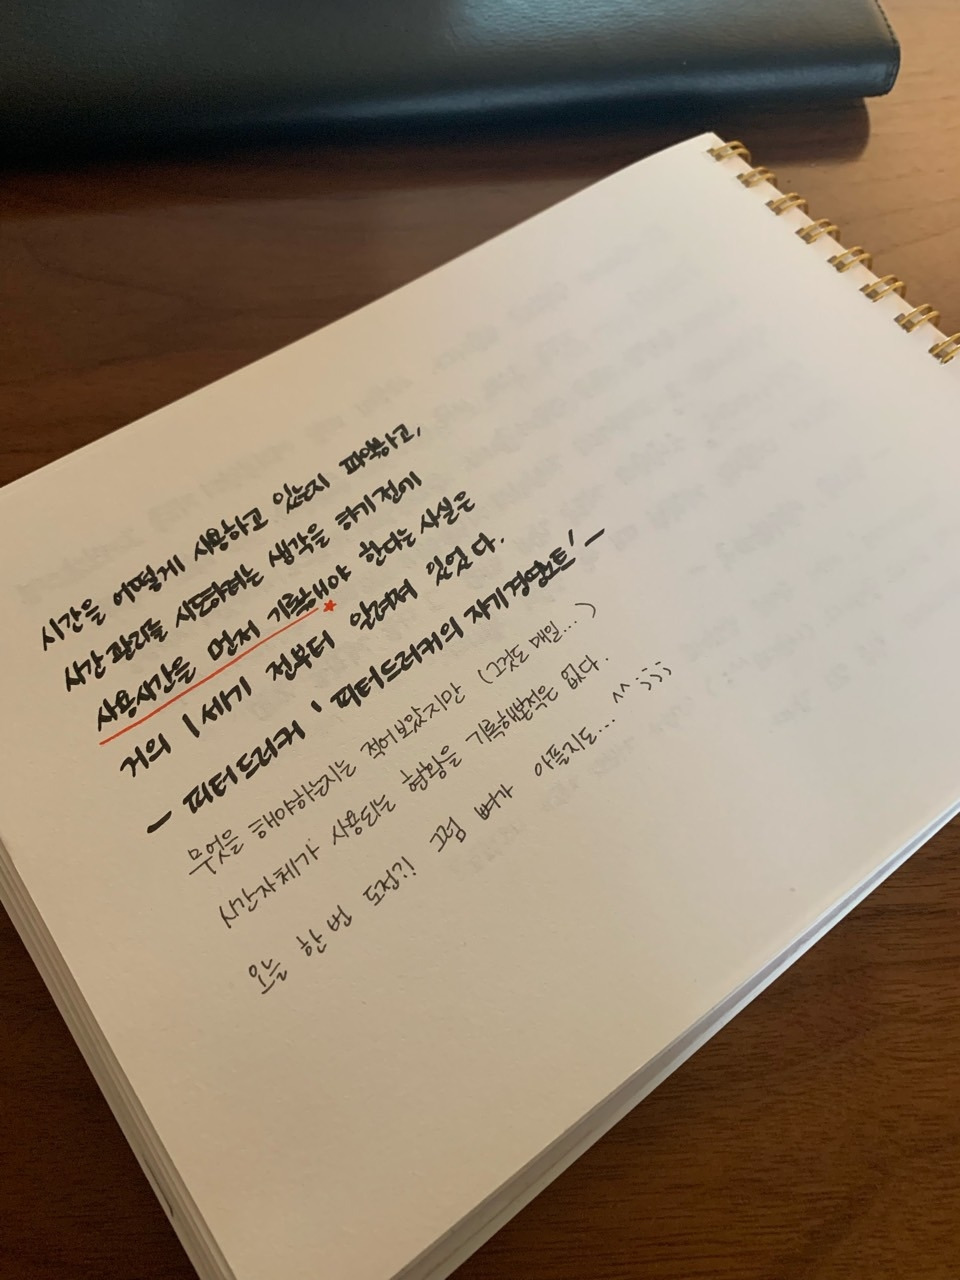 시간을 어떻게 사용하고 있는지 파악하고,
시간 관리를 시도하려는 생각을 하기 전에
사용시간을 먼저 기록해야 한다는 사실은
거의 1세기 전부터 알려져 있었다.
- 피터드러커, 피터드러커의 자기경영노트, -
무엇을 해야하는지는 적어보았지만 (그것도 매일...)
시간자체가 사용되는 현황을 기록해본적은 없다.
오늘 한번 도전?! 그럼 뼈가 아플지도... ^^;;;;